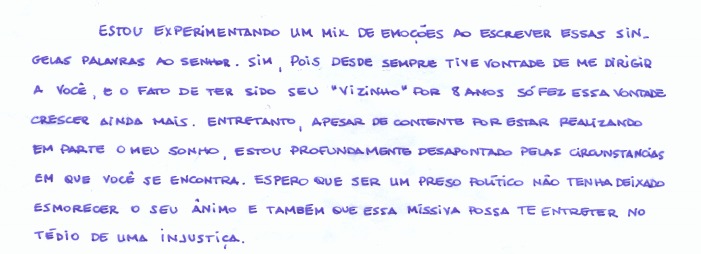 ESTOU EXPERIMENTANDO UM MIX DE EMOÇÕES AO ESCREVER ESSAS SIN-
GELAS PALAVRAS AO SENHOR. SIM, POIS DESDE SEMPRE TIVE VONTADE DE ME DIRIGIR
A VOCÊ, E O FATO DE TER SIDO SEU "VIZINHO" POR 8 ANOS SÓ FEZ ESSA VONTADE
CRESCER AINDA MAIS. ENTRETANTO, APESAR DE CONTENTE POR ESTAR REALIZANDO
EM PARTE O MEU SONHO, ESTOU PROFUNDAMENTE DESAPONTADO PELAS CIRCUNSTANCIAS
EM QUE VOCÊ SE ENCONTRA. ESPERO QUE SER UM PRESO POLÍTICO NÃO TENHA DEIXADO
ESMORECER O SEU ÂNIMO E TAMBÉM QUE ESSA MISSIVA POSSA TE ENTRETER NO
TÉDIO DE UMA INJUSTIÇA.